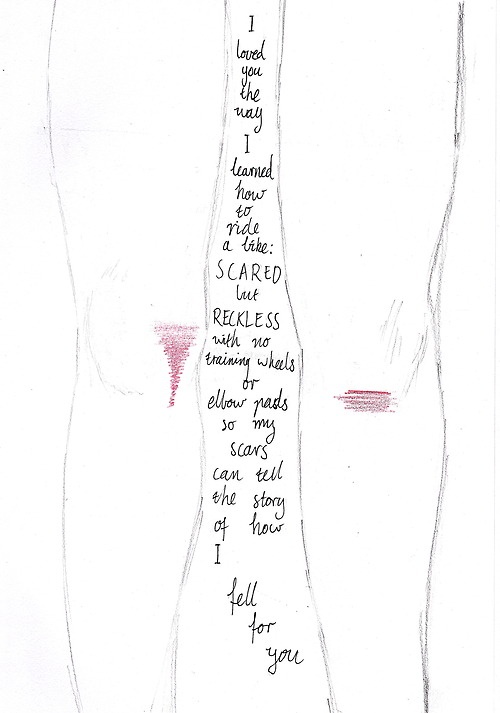 I
loved
you
the
way
I
learned
how
to
ride
a bike:
SCARED
but
RECKLESS
with no
training wheels
or
elbow pads
so my
scars
can tell
the story
of how
I
fell
for
you